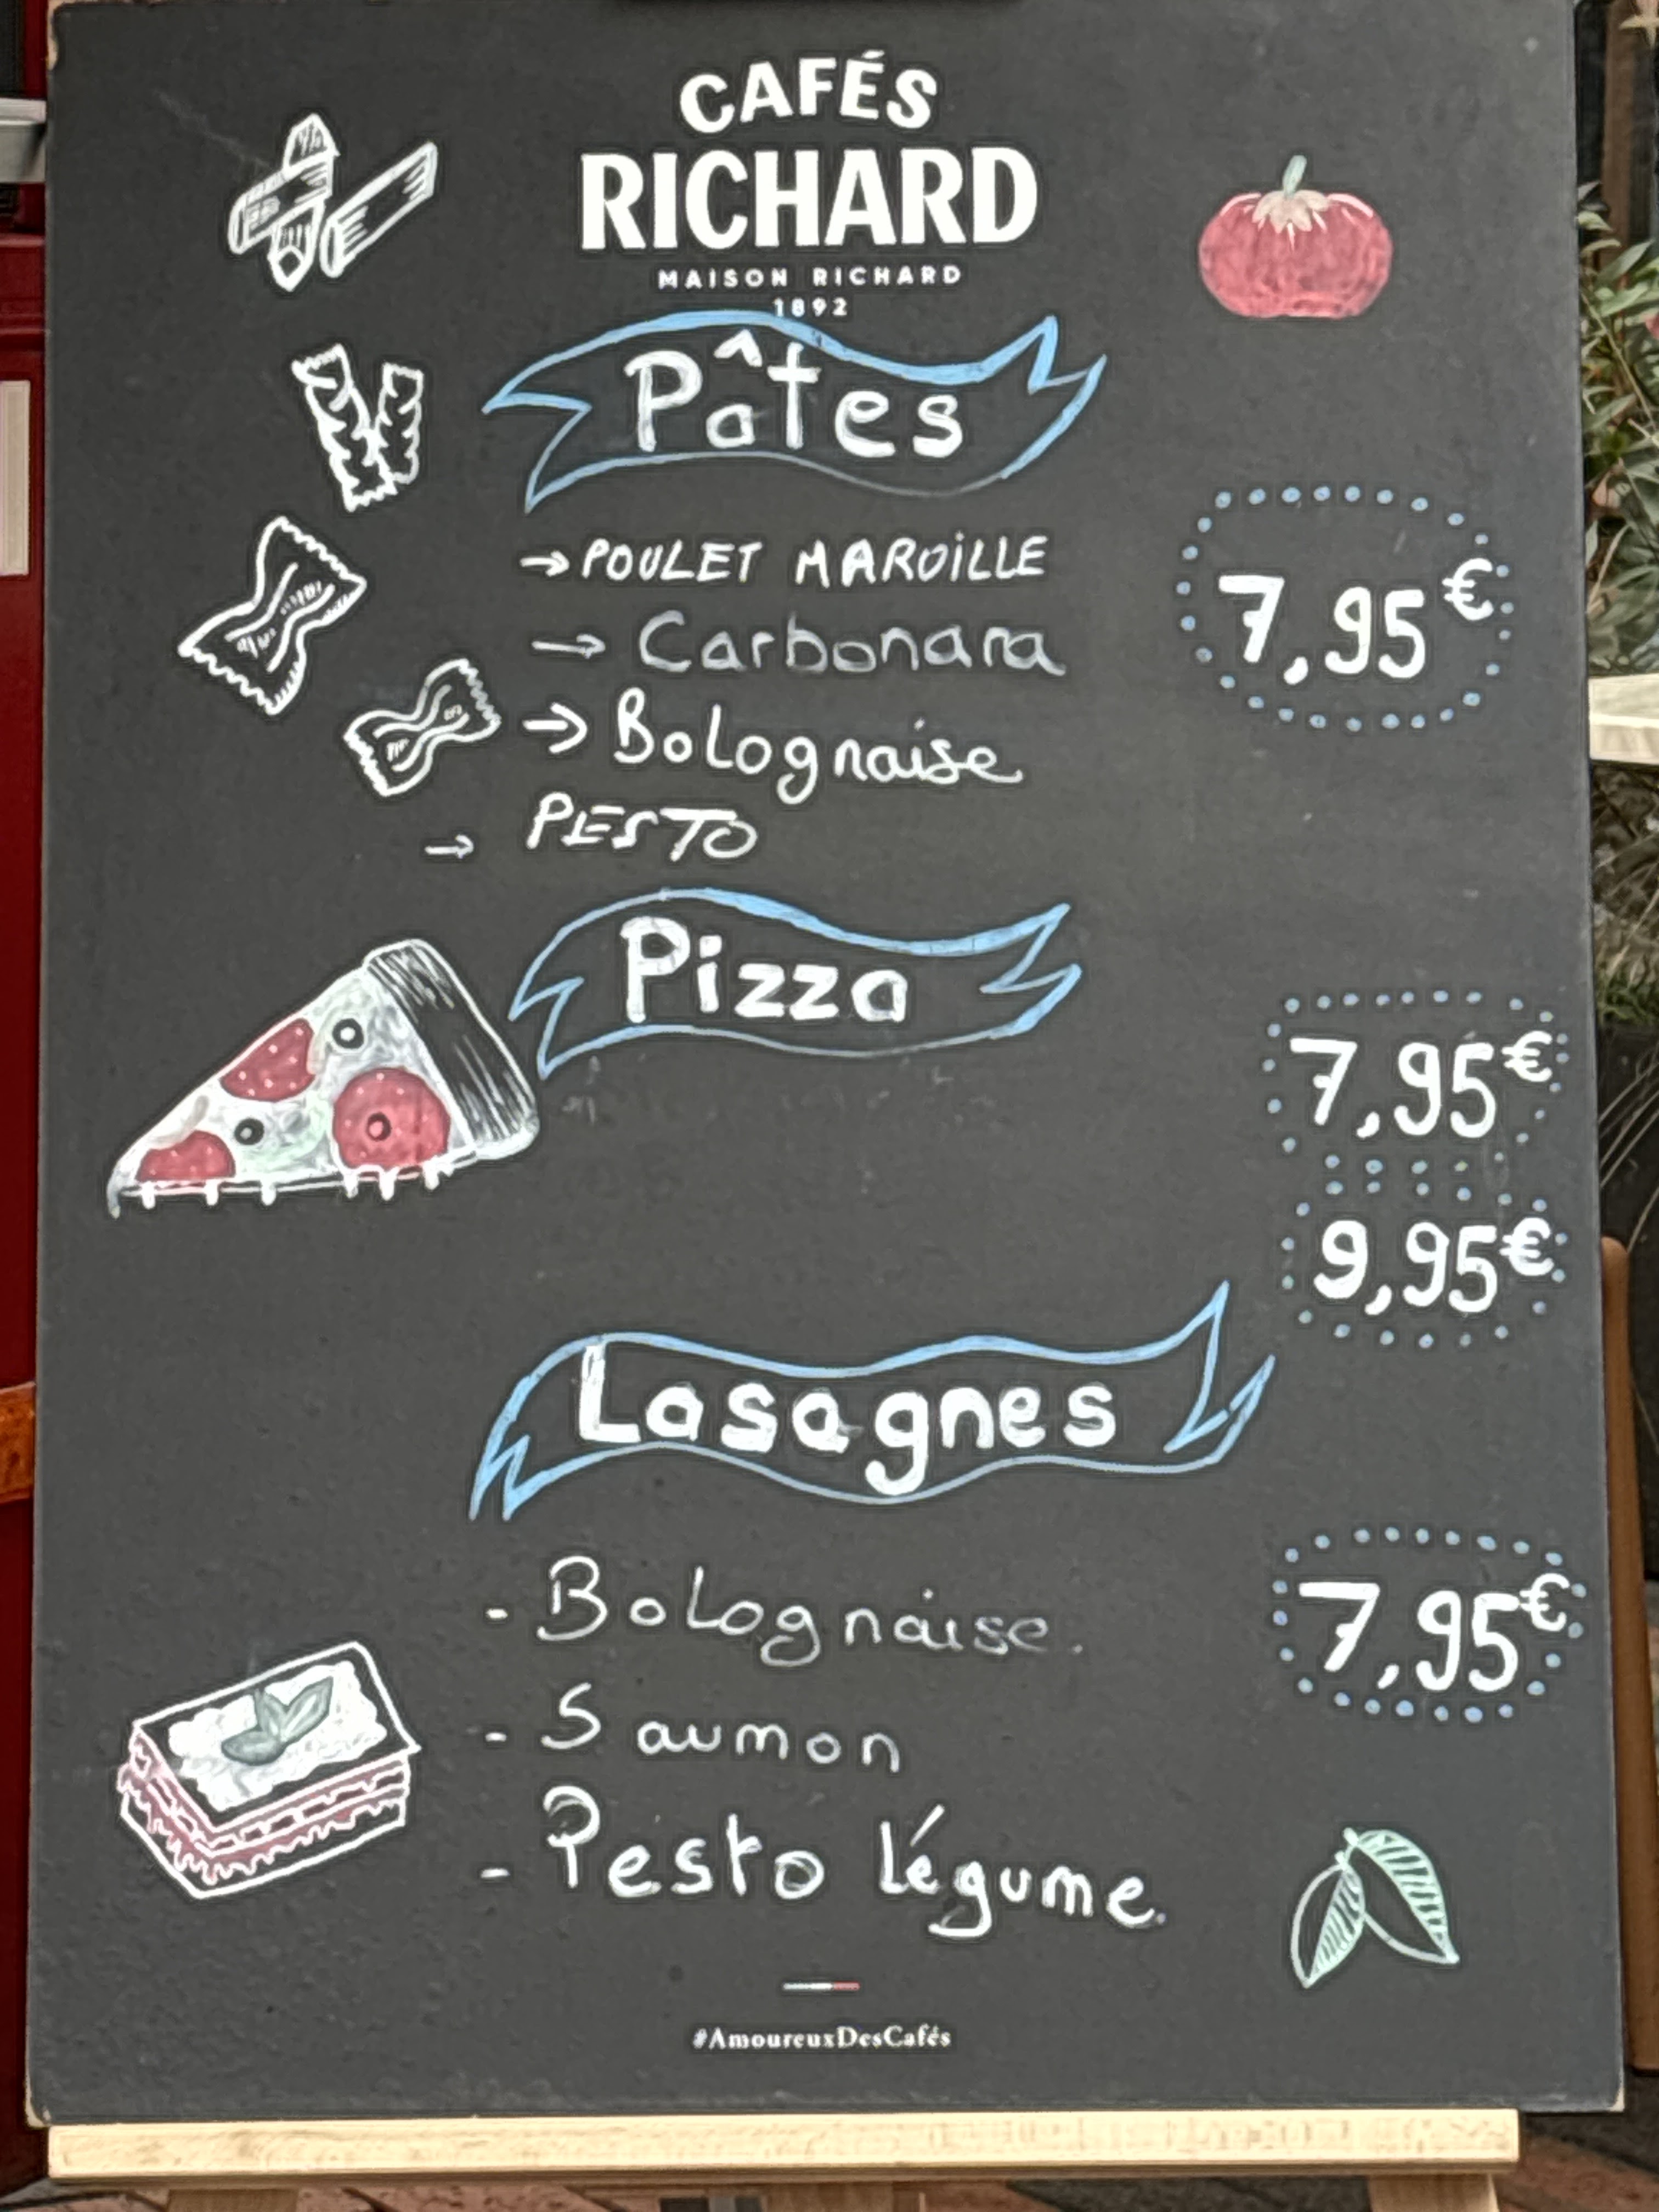 CAFÉS
RICHARD
MAISON RICHARD
1892
Pâtes
→ POULET MAROILLE
→ Carbonara
7,95€
→ Bolognaise
→ PESTO
Pizza
7,95€
9,95€
Lasagnes
- Bolognaise.
7,95€
- Saumon
- Pesto légume.
#AmoureuxDesCafés